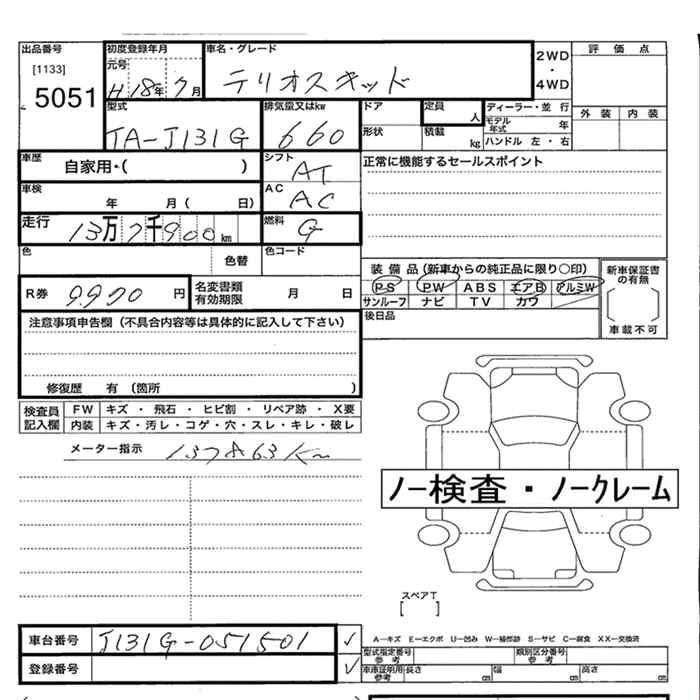 出品番号 初度登録年月 車名・グレード 2WD ・ 4WD 評価点
[1133] 5051 元号 H 18年 7月 テリオスキッド 外装 内装
型式 TA-J131G 排気量又はkw 660 ドア 形状 定員 人 積載 kg ディーラー・並行 モデル年式 年 ハンドル 左・右
車歴 自家用・( ) シフト AT 正常に機能するセールスポイント
車検 年 月( 日) AC AC
走行 13万7千900km 燃料 G
色 色替 色コード 装備品(新車からの純正品に限り○印) 新車保証書の有無
R券 9,970円 名変書類有効期限 月 日 PS PW ABS エアB アルミW
サンルーフ ナビ TV カワ 車載不可
注意事項申告欄(不具合内容等は具体的に記入して下さい) 後日品
修復歴 有(箇所 )
検査員記入欄 FW キズ・飛石・ヒビ割・リペア跡・X要
内装 キズ・汚レ・コゲ・穴・スレ・キレ・破レ
メーター指示 137863Km
ノー検査・ノークレーム
スペアT
[ ]
車台番号 J131G-051501 ✓ A—キズ E—エクボ U—凹み W—補修跡 S—サビ C—腐食 XX—交換済
登録番号 ✓ 型式指定番号 参考 類別区分番号 参考
車庫証明用 参考 長さ ㎝ 幅 ㎝ 高さ ㎝